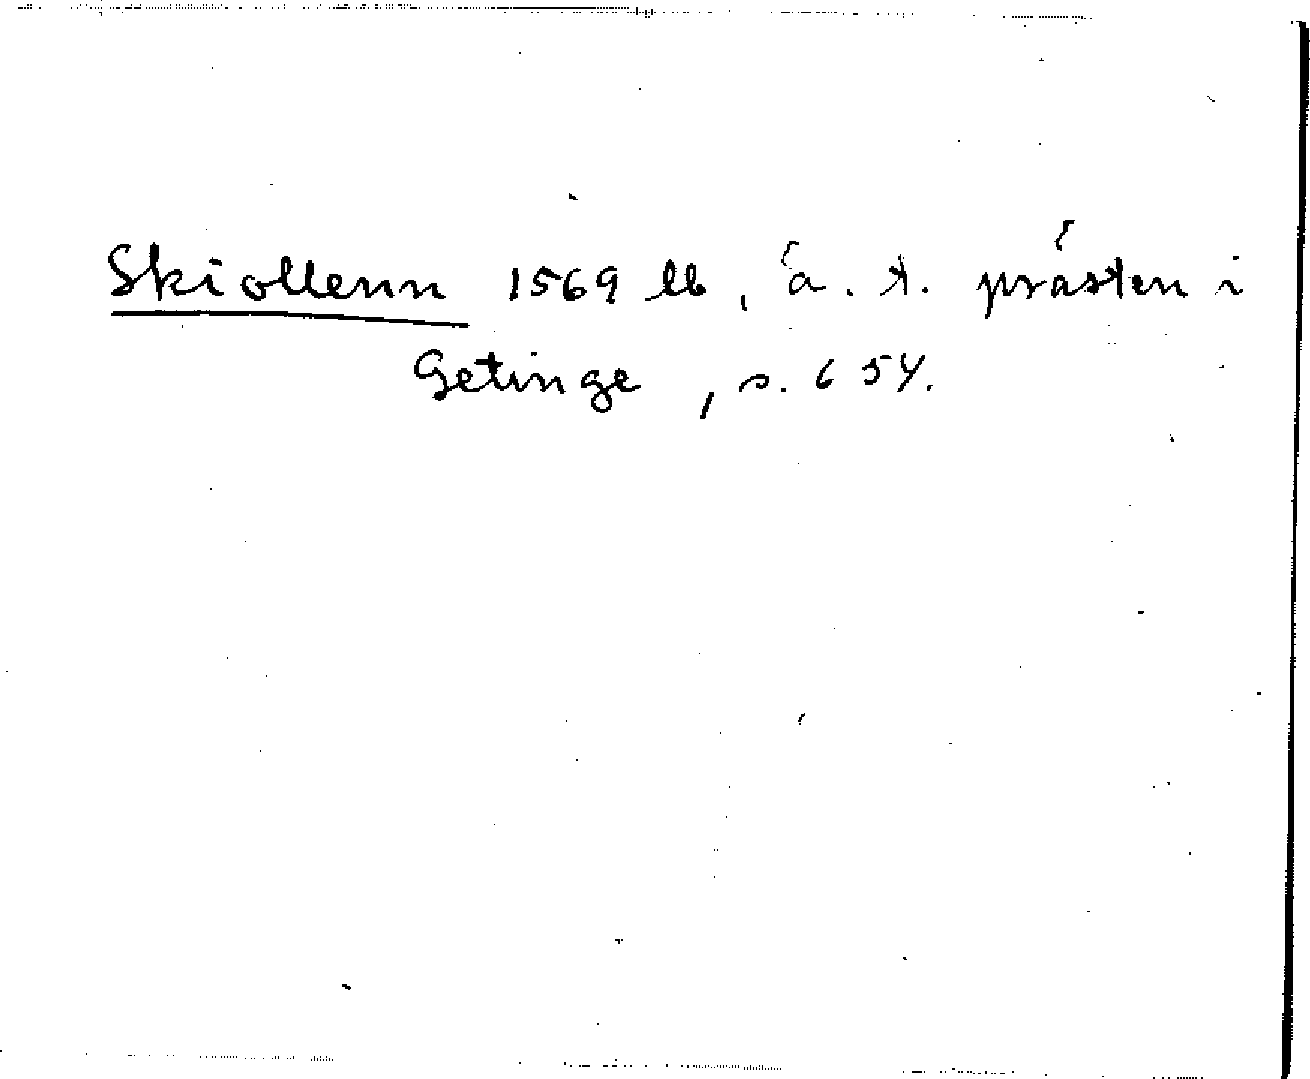 Skiollenn 1569 lb, ä. t. prästen i
Getinge, s. 654.